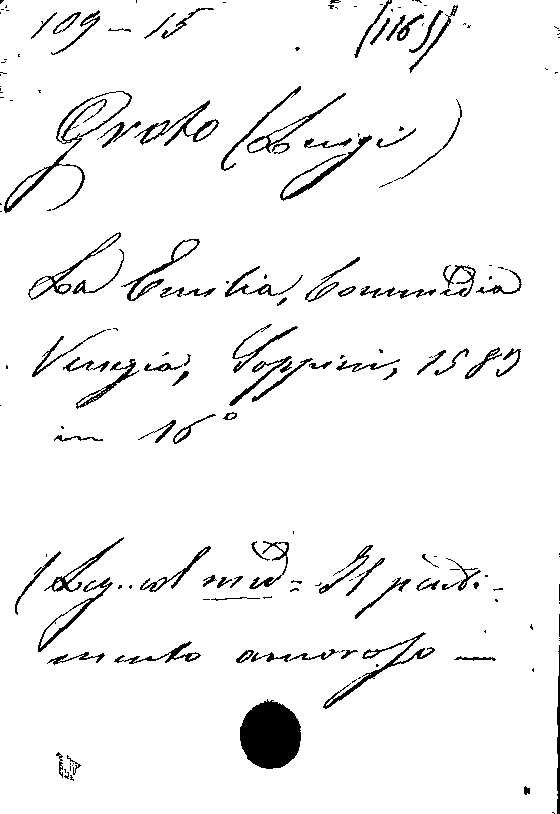 109 - 15 (1165)
Groto (Luigi)
La Emilia, Commedia
Venezia, Zoppini, 1583
in 16°
(Leg. col med = Il penti-
mento amoroso —